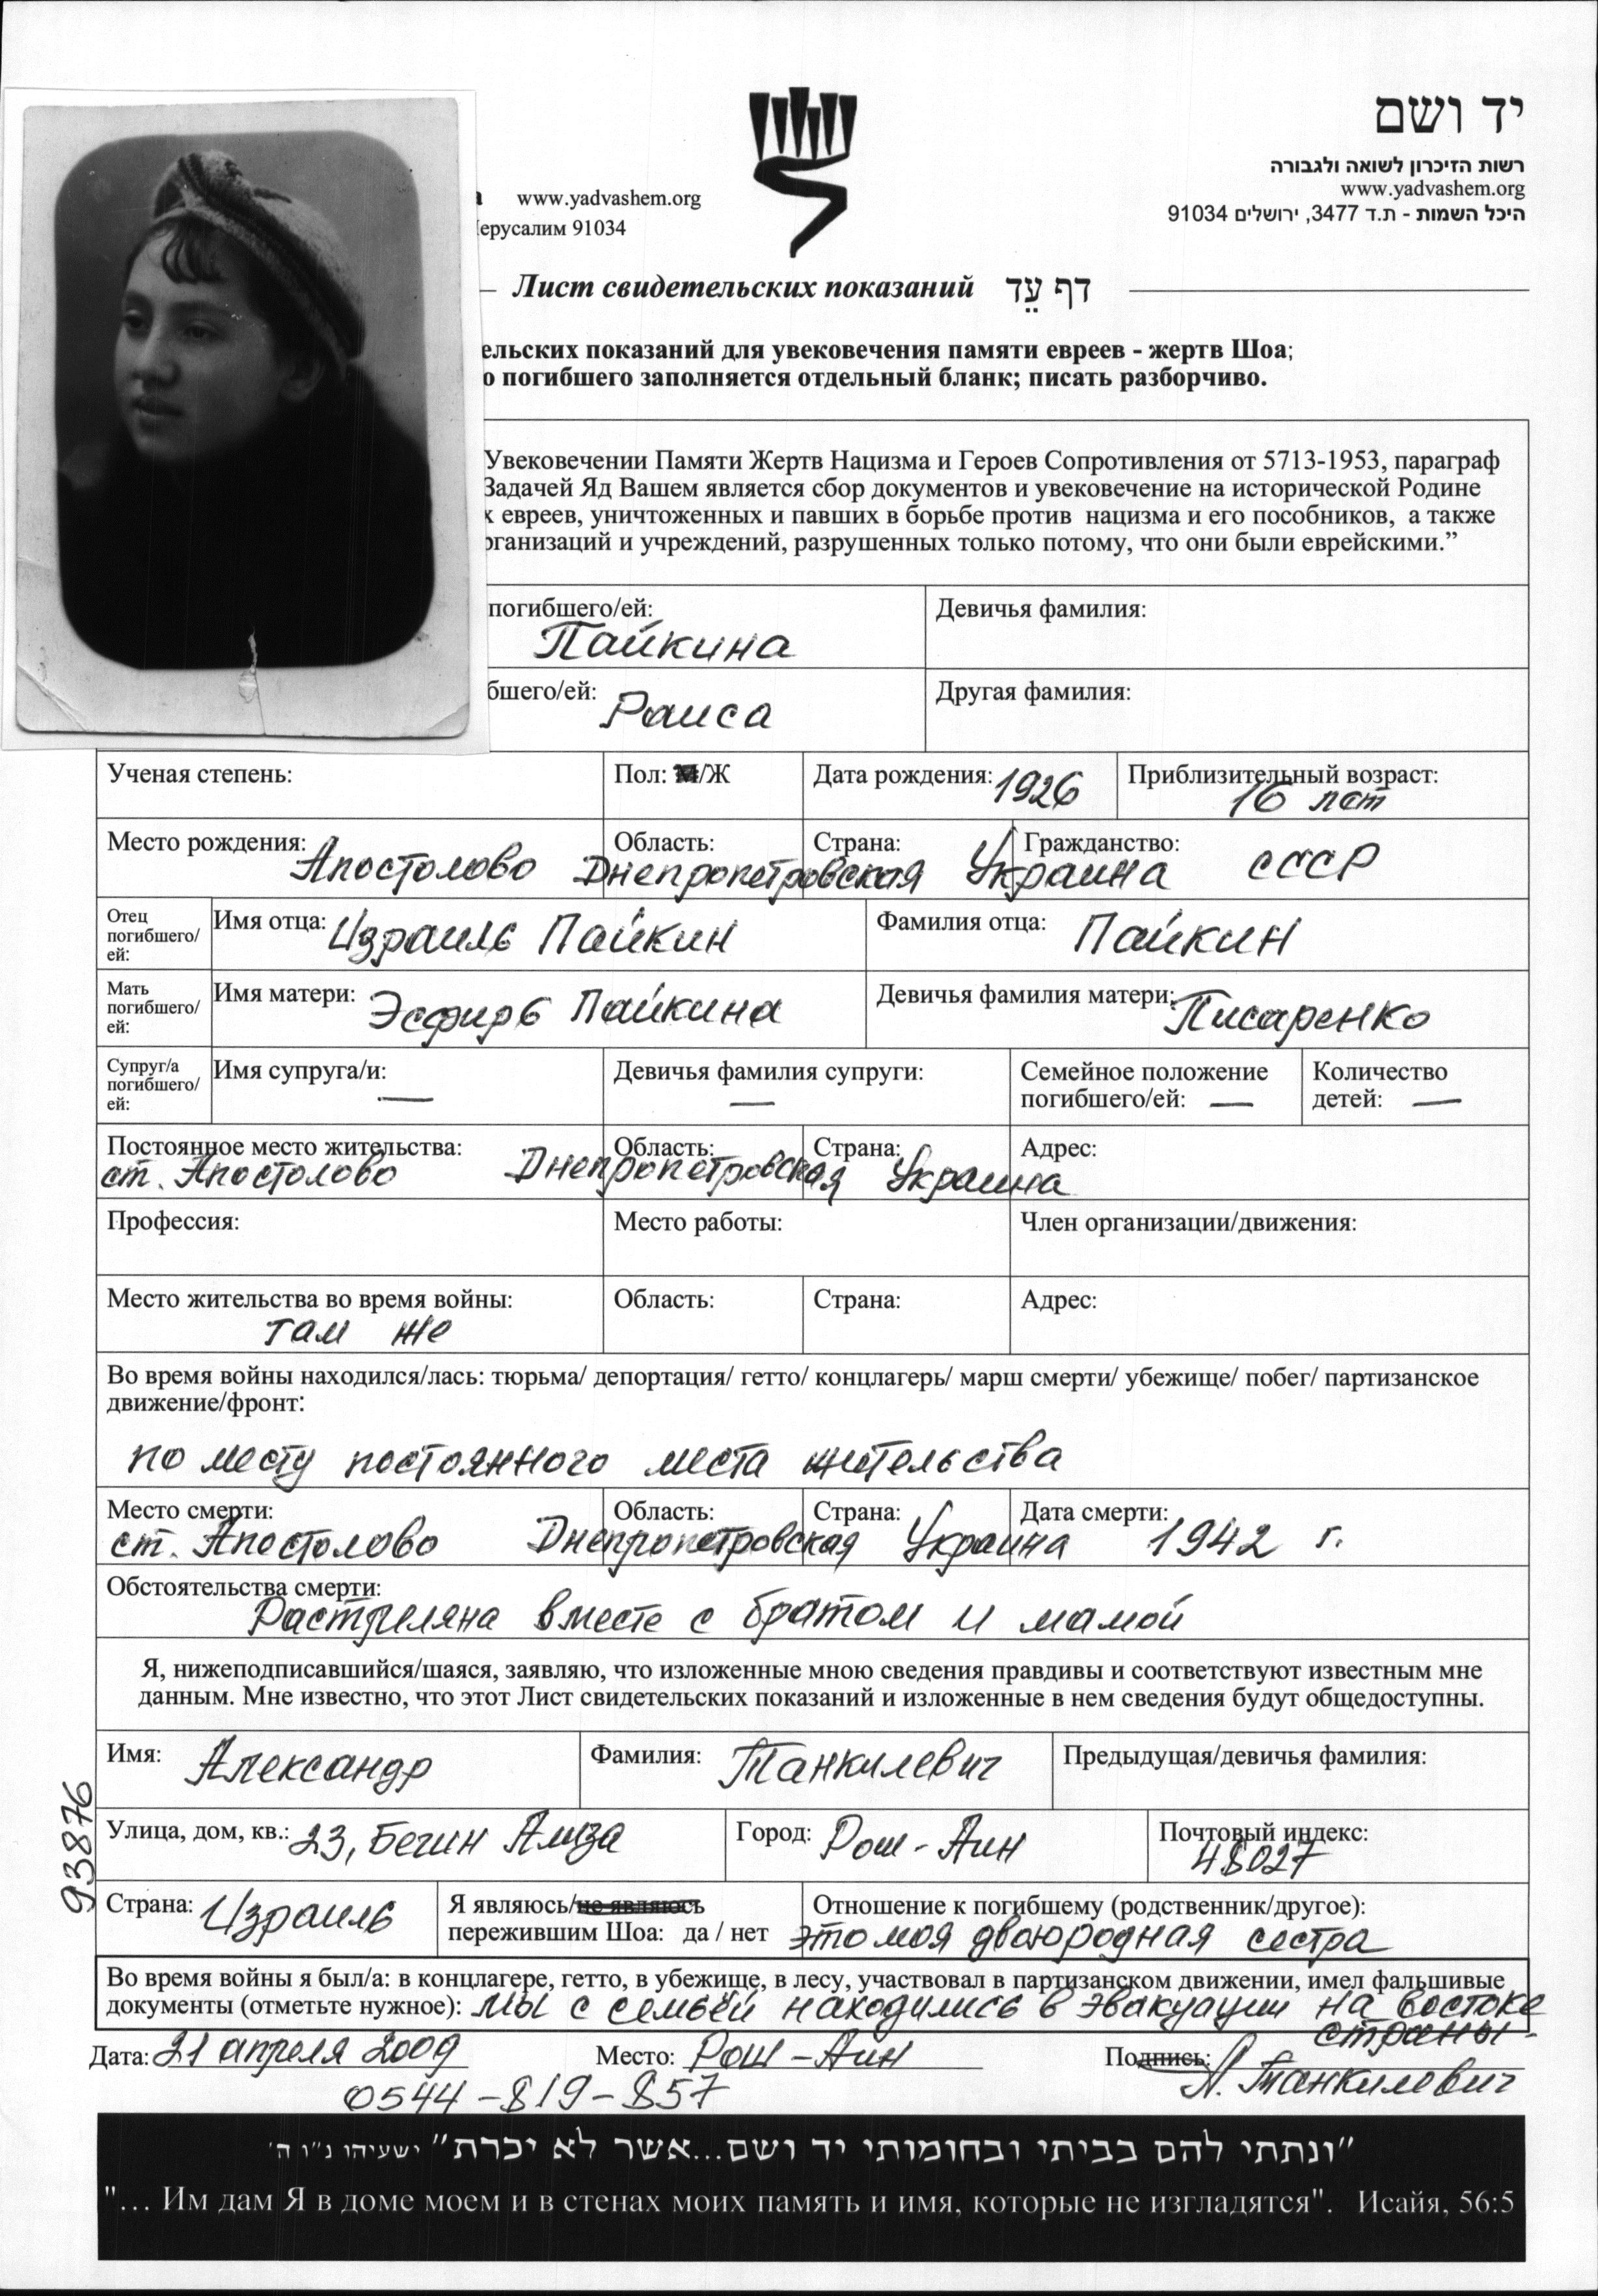 יד ושם
רשות הזיכרון לשואה ולגבורה
www.yadvashem.org
היכל השמות - ת.ד 3477, ירושלים 91034
а www.yadvashem.org
Иерусалим 91034
Лист свидетельских показаний דף עֵד
ельских показаний для увековечения памяти евреев - жертв Шоа;
о погибшего заполняется отдельный бланк; писать разборчиво.
Увековечении Памяти Жертв Нацизма и Героев Сопротивления от 5713-1953, параграф
Задачей Яд Вашем является сбор документов и увековечение на исторической Родине
х евреев, уничтоженных и павших в борьбе против нацизма и его пособников, а также
рганизаций и учреждений, разрушенных только потому, что они были еврейскими.”
погибшего/ей: Пайкина Девичья фамилия:
бшего/ей: Раиса Другая фамилия:
Ученая степень: Пол: М/Ж Дата рождения: 1926 Приблизительный возраст: 16 лет
Место рождения: Апостолово Область: Днепропетровская Страна: Украина Гражданство: СССР
Отец погибшего/ей: Имя отца: Израиль Пайкин Фамилия отца: Пайкин
Мать погибшего/ей: Имя матери: Эсфирь Пайкина Девичья фамилия матери: Писаренко
Супруг/а погибшего/ей: Имя супруга/и: — Девичья фамилия супруги: — Семейное положение погибшего/ей: — Количество детей: —
Постоянное место жительства: ст. Апостолово Область: Днепропетровская Страна: Украина Адрес:
Профессия: Место работы: Член организации/движения:
Место жительства во время войны: там же Область: Страна: Адрес:
Во время войны находился/лась: тюрьма/ депортация/ гетто/ концлагерь/ марш смерти/ убежище/ побег/ партизанское
движение/фронт:
по месту постоянного места жительства
Место смерти: ст. Апостолово Область: Днепропетровская Страна: Украина Дата смерти: 1942 г.
Обстоятельства смерти:
Растреляна вместе с братом и мамой
Я, нижеподписавшийся/шаяся, заявляю, что изложенные мною сведения правдивы и соответствуют известным мне
данным. Мне известно, что этот Лист свидетельских показаний и изложенные в нем сведения будут общедоступны.
Имя: Александр Фамилия: Танкилевич Предыдущая/девичья фамилия:
Улица, дом, кв.: 23, Бегин Ализа Город: Рош-Аин Почтовый индекс: 48027
Страна: Израиль Я являюсь/не являюсь пережившим Шоа: да / нет Отношение к погибшему (родственник/другое): это моя двоюродная сестра
Во время войны я был/а: в концлагере, гетто, в убежище, в лесу, участвовал в партизанском движении, имел фальшивые
документы (отметьте нужное): Мы с семьёй находились в эвакуации на востоке
страны.
Дата: 21 апреля 2009 Место: Рош-Аин Подпись: А. Танкилевич
0544-819-857
93876
"ונתתי להם בביתי ובחומותי יד ושם...אשר לא יכרת" ישעיהו נ"ו ה'
"... Им дам Я в доме моем и в стенах моих память и имя, которые не изгладятся". Исайя, 56:5